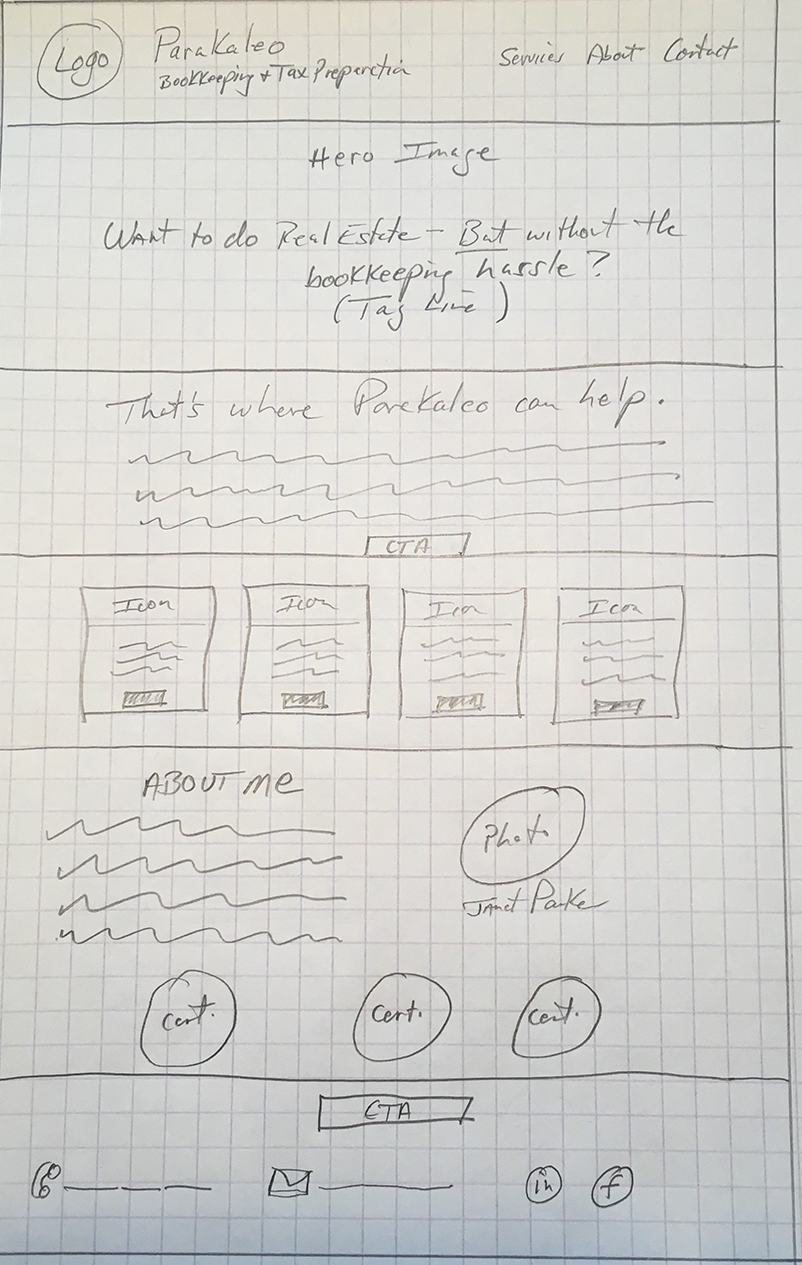 Logo
ParaKaleo
Bookkeeping + Tax Preparation
Services About Contact
Hero Image
Want to do Real Estate - But without the
bookkeeping hassle?
(Tag Line)
That's where ParaKaleo can help.
CTA
Icon Icon Icon Icon
ABOUT ME
Photo
Janet Parke
Cert. Cert. Cert.
CTA
in f